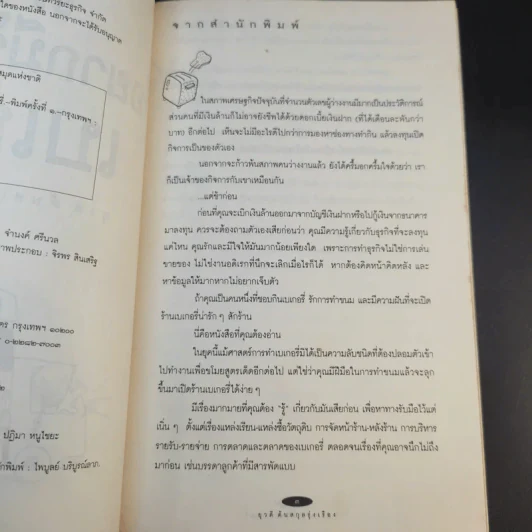 วรรธยะธุรกิจ จำกัด
ใดของหนังสือ นอกจากจะได้รับอนุญาต
สมุดแห่งชาติ
-พิมพ์ครั้งที่ ๑.-กรุงเทพฯ :
จำนงค์ ศรีนวล
ภาพประกอบ : จิรพร สินเสริฐ
กรุงเทพฯ ๑๐๒๐๐
๐-๒๒๘๒-๗๐๐๓
ปฏิมา หนูไชยะ
พิมพ์ : ไพบูลย์ บริบูรณ์ลาภ
จากสำนักพิมพ์
ในสภาพเศรษฐกิจปัจจุบันที่จำนวนตัวเลขผู้ว่างงานมีมากเป็นประวัติการณ์
ส่วนคนที่มีเงินล้านก็ไม่อาจยังชีพได้ด้วยดอกเบี้ยเงินฝาก (ที่ได้เดือนละพันกว่า
บาท) อีกต่อไป เห็นจะไม่มีอะไรดีไปกว่าการมองหาช่องทางทำกิน แล้วลงทุนเปิด
กิจการเป็นของตัวเอง
นอกจากจะก้าวพ้นสภาพคนว่างงานแล้ว ยังได้ครึ้มอกครึ้มใจด้วยว่า เรา
ก็เป็นเจ้าของกิจการกับเขาเหมือนกัน
...แต่ช้าก่อน
ก่อนที่คุณจะเบิกเงินล้านออกมาจากบัญชีเงินฝากหรือไปกู้เงินจากธนาคาร
มาลงทุน ควรจะต้องถามตัวเองเสียก่อนว่า คุณมีความรู้เกี่ยวกับธุรกิจที่จะลงทุน
แค่ไหน คุณรักและมีใจให้มันมากน้อยเพียงใด เพราะการทำธุรกิจไม่ใช่การเล่น
ขายของ ไม่ใช่งานอดิเรกที่นึกจะเลิกเมื่อไรก็ได้ หากต้องคิดหน้าคิดหลัง และ
หาข้อมูลให้มากหากไม่อยากเจ็บตัว
ถ้าคุณเป็นคนหนึ่งที่ชอบกินเบเกอรี่ รักการทำขนม และมีความฝันที่จะเปิด
ร้านเบเกอรี่น่ารัก ๆ สักร้าน
นี่คือหนังสือที่คุณต้องอ่าน
ในยุคนี้แม้ศาสตร์การทำเบเกอรี่มิได้เป็นความลับชนิดที่ต้องปลอมตัวเข้า
ไปทำงานเพื่อขโมยสูตรเด็ดอีกต่อไป แต่ใช่ว่าคุณมีฝีมือในการทำขนมแล้วจะลุก
ขึ้นมาเปิดร้านเบเกอรี่ได้ง่าย ๆ
มีเรื่องมากมายที่คุณต้อง "รู้" เกี่ยวกับมันเสียก่อน เพื่อหาทางรับมือไว้แต่
เนิ่น ๆ ตั้งแต่เรื่องแหล่งเรียน-แหล่งซื้อวัตถุดิบ การจัดหน้าร้าน-หลังร้าน การบริหาร
รายรับ-รายจ่าย การตลาดและตลาดของเบเกอรี่ ตลอดจนเรื่องที่คุณอาจนึกไม่ถึง
มาก่อน เช่นบรรดาลูกค้าที่มีสารพัดแบบ
๓
ยุวดี ต้นสกุลรุ่งเรือง